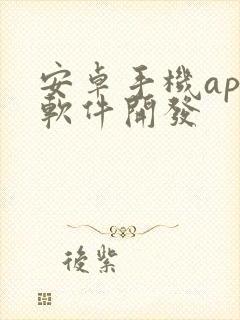 安卓手機ap
軟件開發
後紫